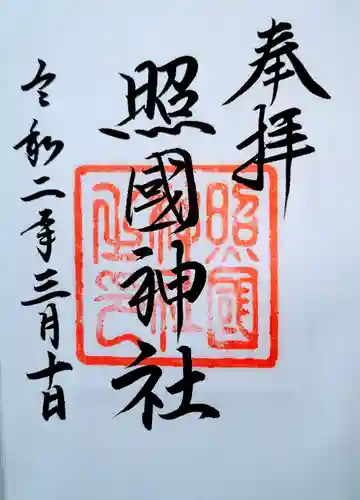 奉拝
照國神社
令和二年三月十日
照國
神社